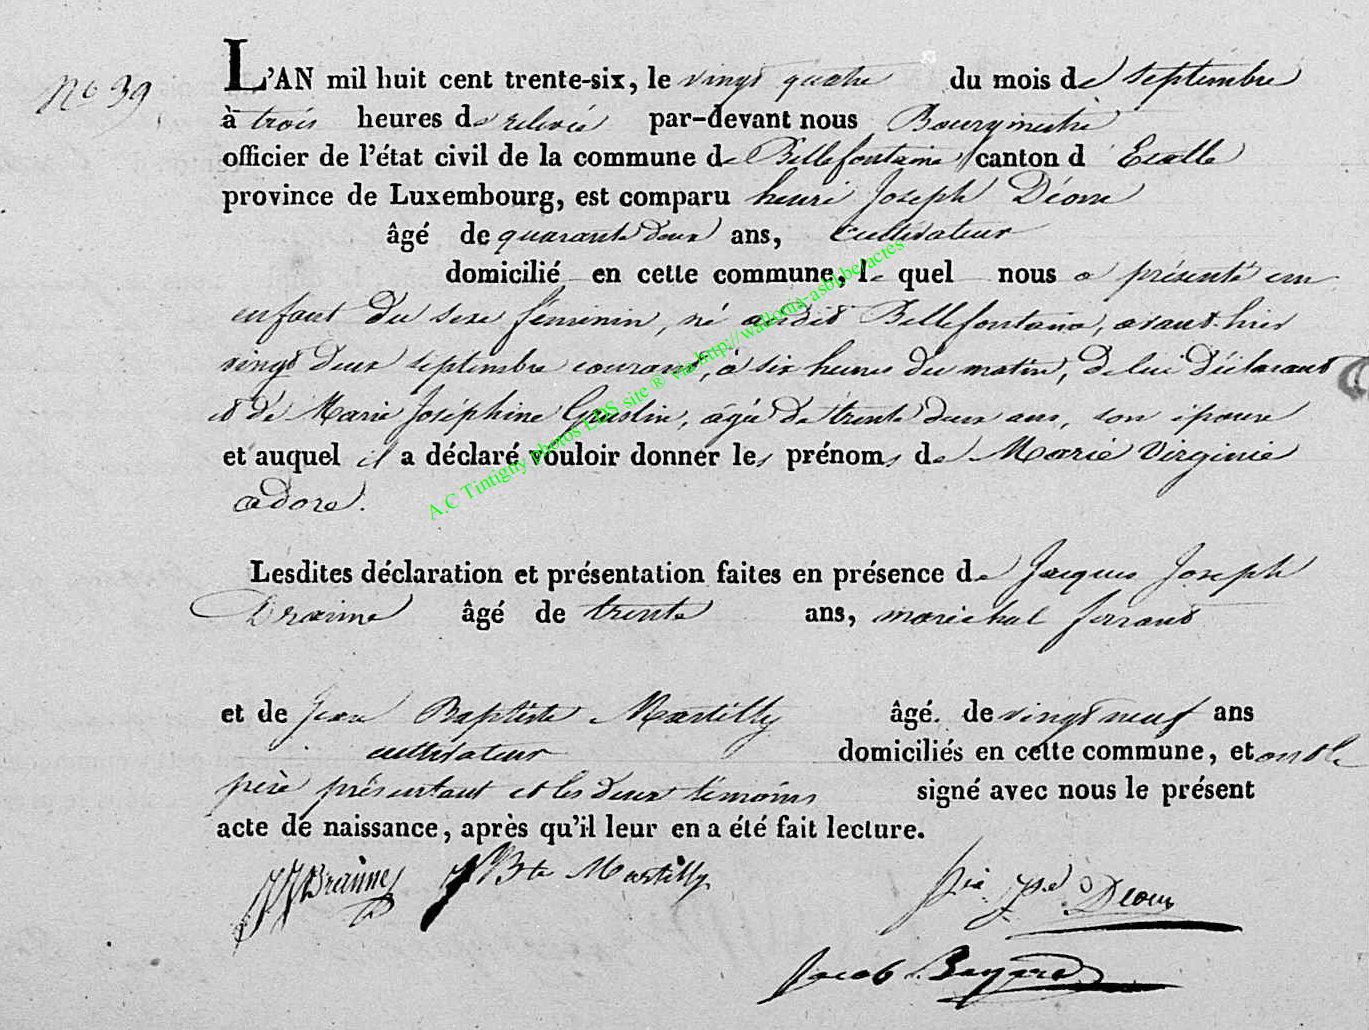 No 39
L'AN mil huit cent trente-six, le vingt quatre du mois de septembre
à trois heures de relevée par-devant nous Bourgmestre
officier de l'état civil de la commune de Bellefontaine canton d' Etalle
province de Luxembourg, est comparu henri Joseph Déom
âgé de quarante deux ans, cultivateur
domicilié en cette commune, le quel nous a présenté un
enfant du sexe féminin, né audit Bellefontaine, avant hier
vingt deux septembre courant, à six heures du matin, de lui déclarant
et de Marie Joséphine Goslin, agée de trente deux ans, son épouse
et auquel il a déclaré vouloir donner les prénoms de Marie Virginie
adore.
Lesdites déclaration et présentation faites en présence de Jacques Joseph
Brainne âgé de trente ans, maréchal ferrant
et de Jean Baptiste Martilly âgé de vingt neuf ans
cultivateur domiciliés en cette commune, et ont le
père présentant et les deux témoins signé avec nous le présent
acte de naissance, après qu'il leur en a été fait lecture.
JJ Brainne J Bte Martilly
jph Deom
Jacob
A.C Tintigny photos LDS site ® via http://wallonia-asbl.be/actes